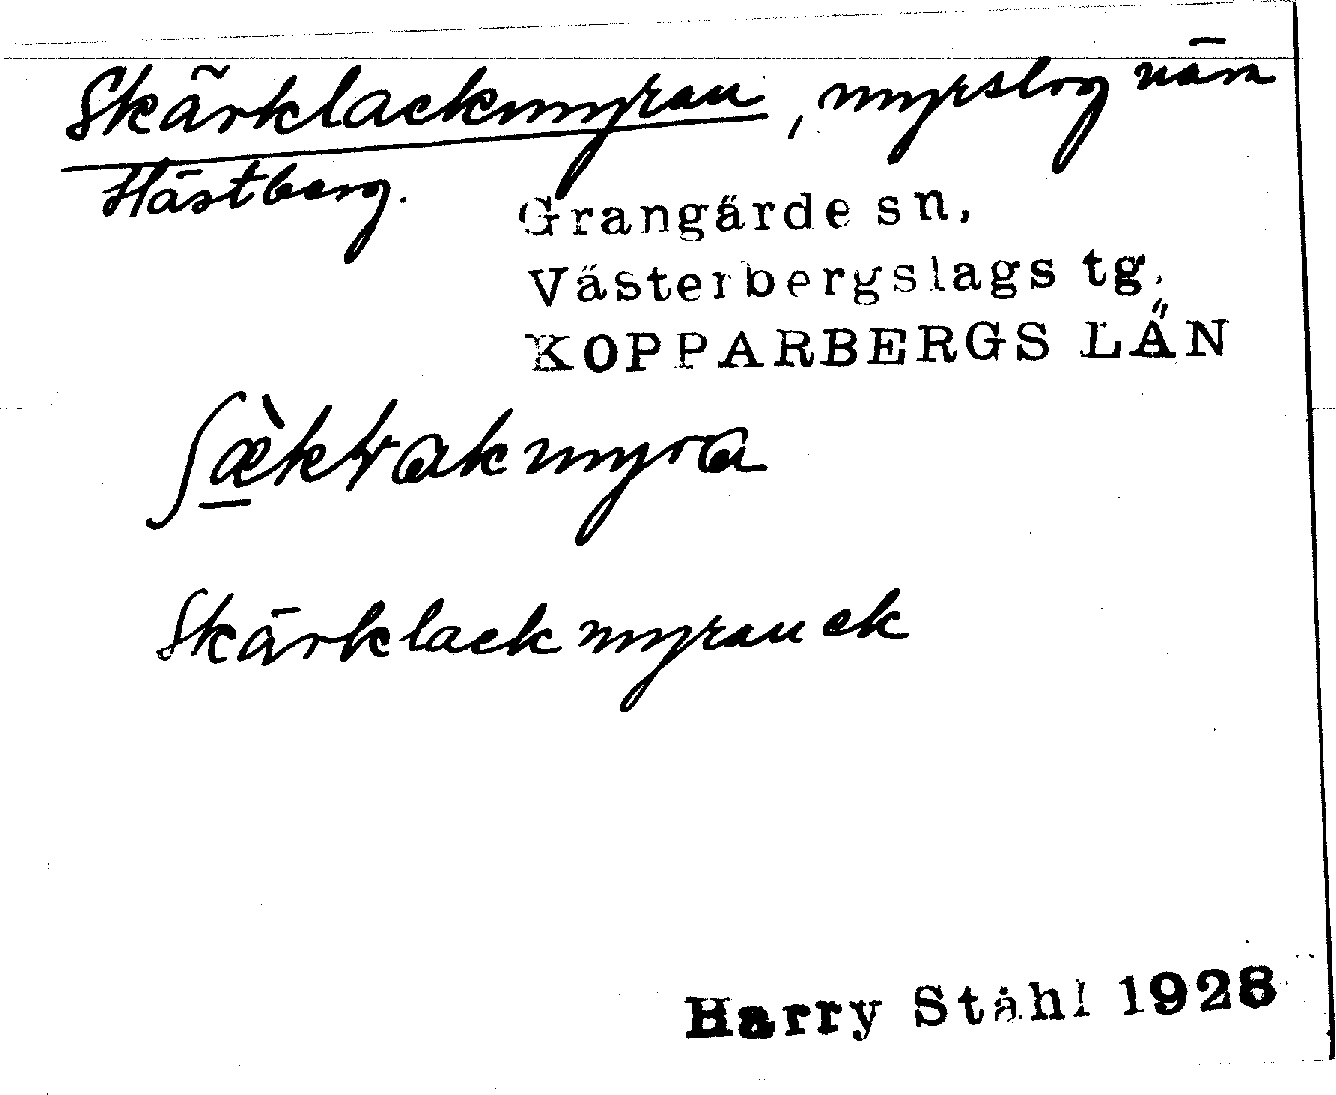 Skärklackmyran, myrslog näm
Hästberg.
Grangärde sn,
Västerbergslags tg.
KOPPARBERGS LÄN
Skärklackmyran ek
Harry Ståhl 1928